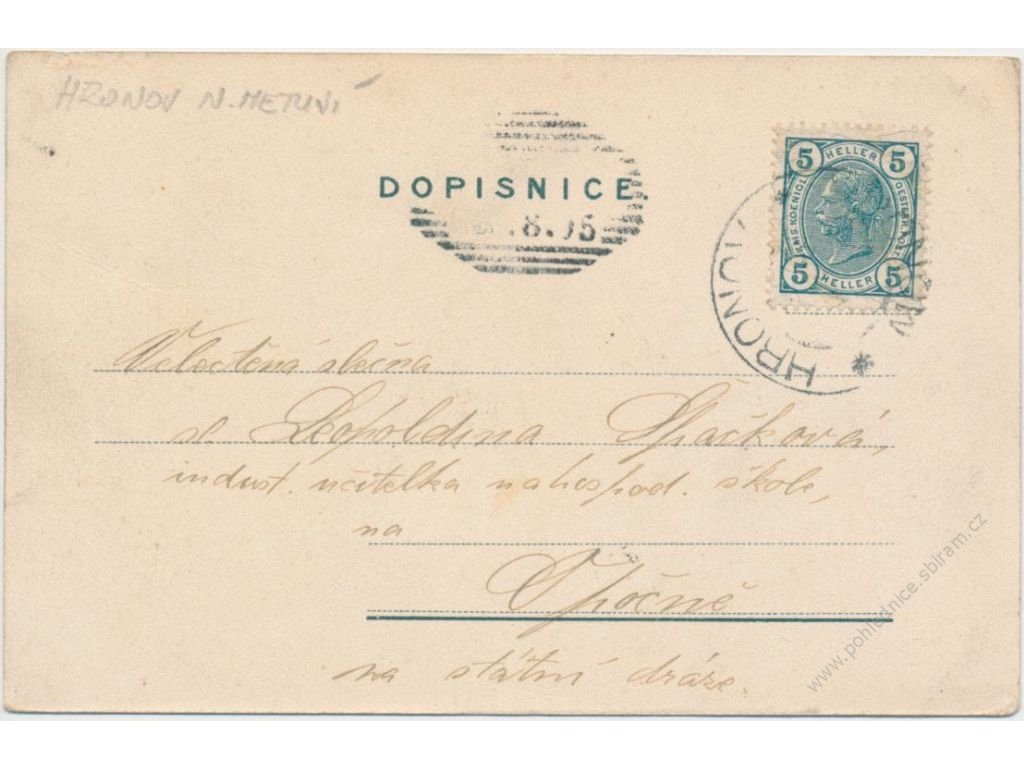 HRONOV N. METUJÍ
DOPISNICE.
8.05
5 HELLER 5
KAIS. KOENIGL.
OESTERR. POST.
5 HELLER 5
HRONOV
Velectěná slečna
sl. Leopoldina Špačková,
indust. učitelka na hospod. škole,
na
Opočně
na státní dráze.
www.pohlednice.sbiram.cz